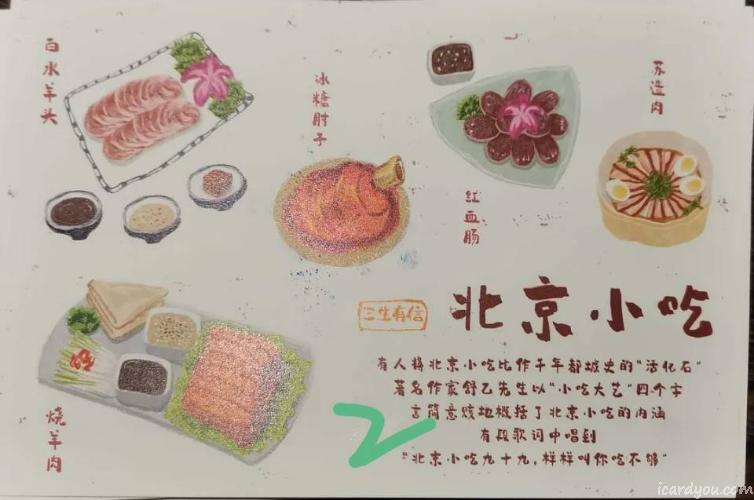 白水羊头
冰糖肘子
红血肠
苏造肉
烧羊肉
三生有信
北京小吃
有人将北京小吃比作千年都城史的“活化石”
著名作家舒乙先生以“小吃大艺”四个字
言简意赅地概括了北京小吃的内涵
有段歌词中唱到
“北京小吃九十九，样样叫你吃不够”
2
icardyou.com